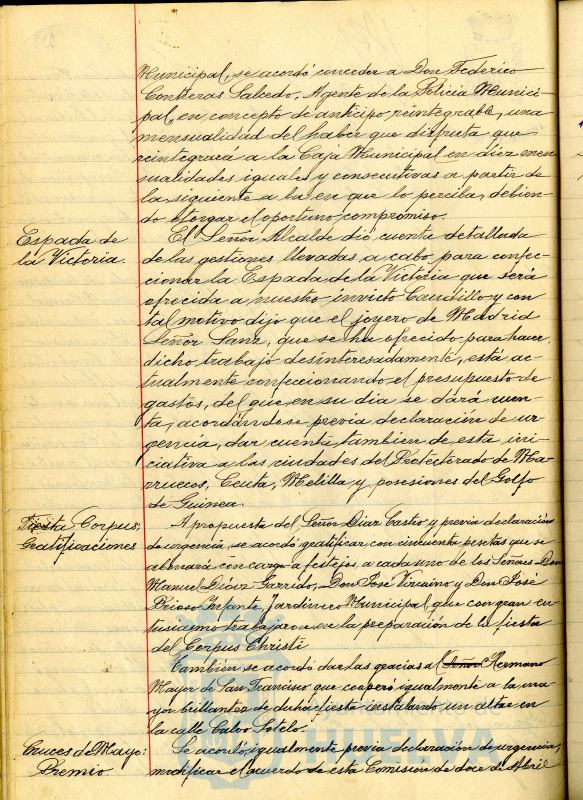 Municipal, se acordó conceder a Don Federico
Contreras Salcedo, Agente de la Policía Munici-
pal, en concepto de anticipo reintegrable, una
mensualidad del haber que disfruta que
reintegrará a la Caja Municipal en diez men
sualidades iguales y consecutivas a partir de
la siguiente a la en que lo perciba, debien-
do otorgar el oportuno compromiso.
Espada de
la Victoria.
El Señor Alcalde dió cuenta detallada
de las gestiones llevadas a cabo para confec-
cionar la Espada de la Victoria que será
ofrecida a nuestro invicto Caudillo y con
tal motivo dijo que el joyero de Madrid
Señor Sanz, que se ha ofrecido para hacer
dicho trabajo desinteresadamente, está ac-
tualmente confeccionando el presupuesto de
gastos, del que en su dia se dará cuen-
ta, acordándose previa declaración de ur-
gencia, dar cuenta tambien de esta ini-
ciativa a las ciudades del Protectorado de Ma-
rruecos, Ceuta, Melilla y posesiones del Golfo
de Guinea.
Fiesta Corpus:
Gratificaciones
A propuesta del Señor Diaz Castro y previa declaración
de urgencia, se acordó gratificar con cincuenta pesetas que se
abonará con cargo a festejos a cada uno de los Señores Don
Manuel Díaz Garrido, Don José Vizcaino y Don José
Brioso Infante, Jardinero Municipal, que con gran en-
tusiasmo trabajaron en la preparación de la fiesta
del Corpus Christi
Tambien se acordó dar las gracias al Señor Hermano
Mayor de San Francisco que cooperó igualmente a la ma-
yor brillantez de dicha fiesta instalando un altar en
la calle Calvo Sotelo.
Cruces de Mayo:
Premio.
Se acordó, igualmente previa declaración de urgencia,
modificar el acuerdo de esta Comisión de doce de Abril
HUELVA